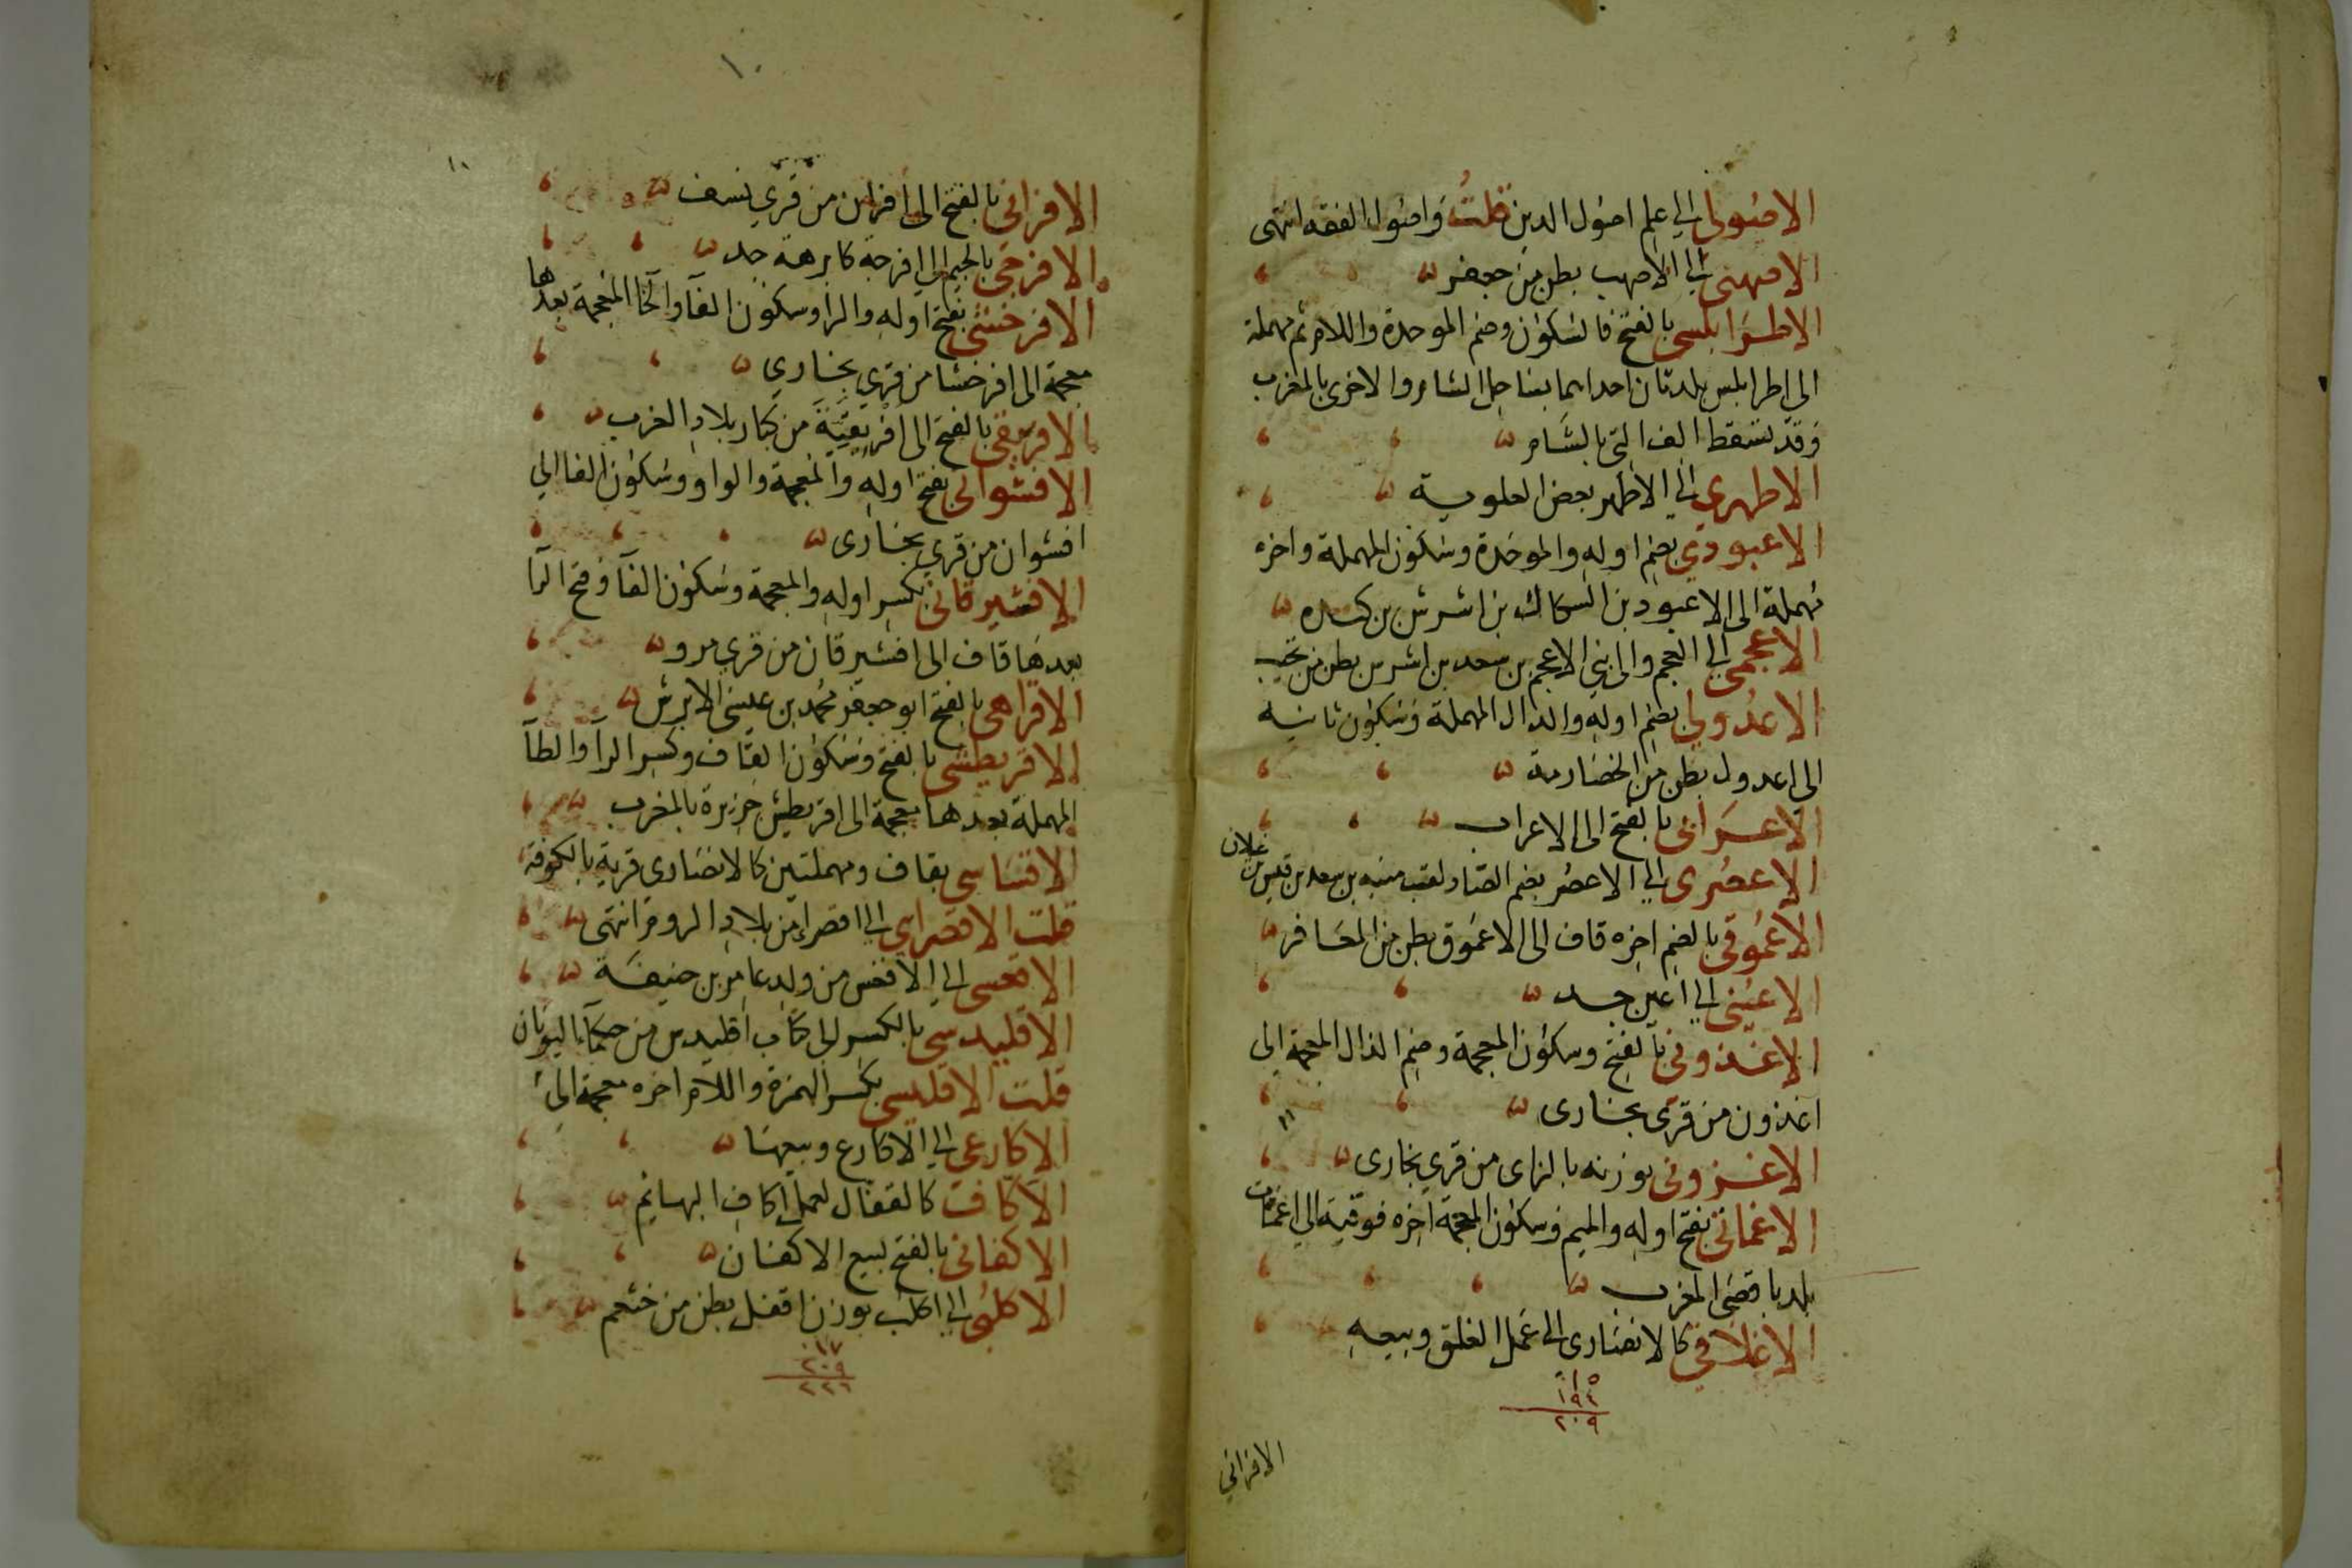 الاصولي الي علم اصول الدين قلت واصول الفقه انتهى
الاصهبى الي الاصهب بطن من جعفر
الاطرابلسى بالفتح فالسكون وضم الموحدة واللام ثم مهملة
الى اطرابلس بلدتان احداهما بساحل الشام والاخرى بالمغرب
وقد تسقط الف التى بالشام
الاطهري الي الاطهر بعض العلوية
الاعبودي بضم اوله والموحدة وسكون المهملة واخره
مهملة الى الاعبود بن السكاك بن اشرس بن كنده
الاعجمى الى العجم والى بني الاعجم بن سعد بن اشرس بطن من تجيب
الاعدولي بضم اوله والدال المهملة وسكون ثانيه
الى اعدول بطن من الحضارمة
الاعرابى بالفتح الى الاعراب
الاعصرى الي الاعصر بضم الصاد لقب منبه بن سعد بن قيس بن
غيلان
الاعموقي بالضم اخره قاف الى الاعموق بطن من المعافر
الاعينى الي اعين جد
الاغذوني بالفتح وسكون المعجمة وضم الذال المعجمة الى
اغذون من قرى بخارى
الاغزونى بوزنه بالزاى من قري بخارى
الاغماتى بفتح اوله والميم وسكون المعجمة اخره فوقية الي اغمات
بلد باقصى المغرب
الاغلاقي كالانصارى الى عمل الغلق وبيعه
١٥
١٩٤
٢٠٩
الافرانى
١٠
١٠
الافرانى بالفتح الى افران من قري نسف
الافرجى بالجيم الى افرجة كابرهة جد
الافرخشى بفتح اوله والرا وسكون الفآ والخا المعجمة بعدها
معجمة الى افرخشا من قري بخاري
الافريقى بالفتح الى افريقية من كبار بلاد الغرب
الافشوانى بفتح اوله والمعجمة والواو وسكون الفا الي
افشوان من قري بخارى
الافشيرقانى بكسر اوله والمعجمة وسكون الفآ وفتح الرآ
بعدها قاف الى افشيرقان من قري مرو
الاقراهى بالفتح ابو جعفر محمد بن عيسى الابرش
الاقريطشى بالفتح وسكون القاف وكسر الرآ والطآ
المهملة بعدها معجمة الى اقريطش جزيرة بالمغرب
الاقساسي بقاف ومهملتين كالانصارى قرية بالكوفة
قلت الاقصراي الي اقصرا من بلاد الروم انتهى
الاقعسى الي الاقعس من ولد عامر بن حنيفة
الاقليدسى بالكسر الى كتاب اقليدس من حكمآء اليونان
قلت الاقليسى بكسر الهمزة واللام اخره معجمة الى
الاكارعى الي الاكارع وبيعها
الاكاف كالقفال لعمل اكاف البهايم
الاكفانى بالفتح لبيع الاكفان
الاكلبى الي اكلب بوزن افعل بطن من خثعم
١٧
٢٠٩
٢٢٦